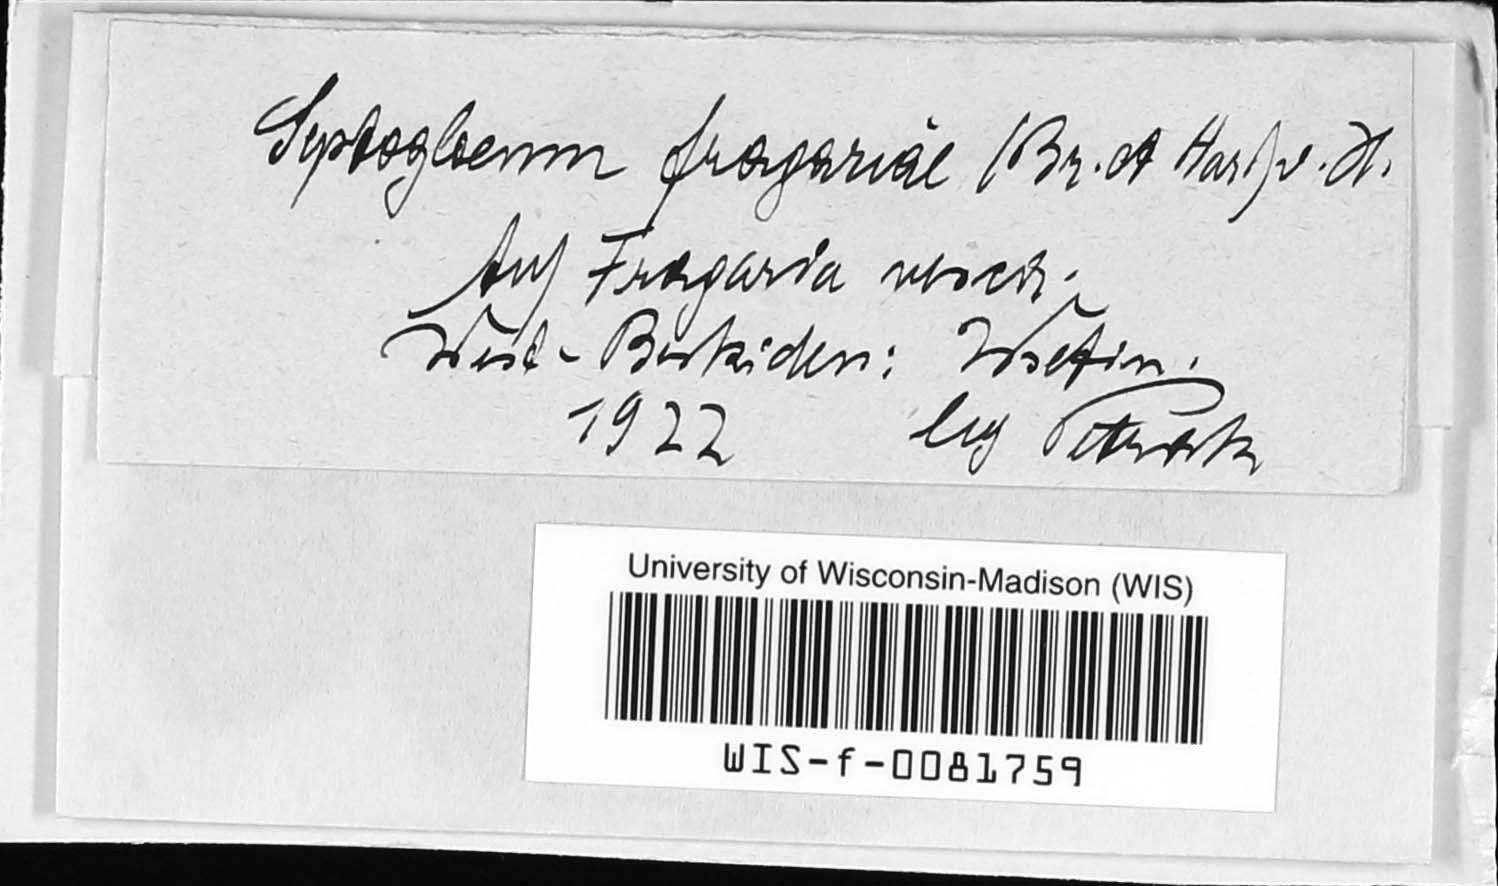 Septogloeum fragariae (Br. et Har.) v. H.
Auf Fragaria vesca.
West-Beskiden: Wsetin.
1922 leg Petrak
University of Wisconsin-Madison (WIS)
WIS-f-0081759